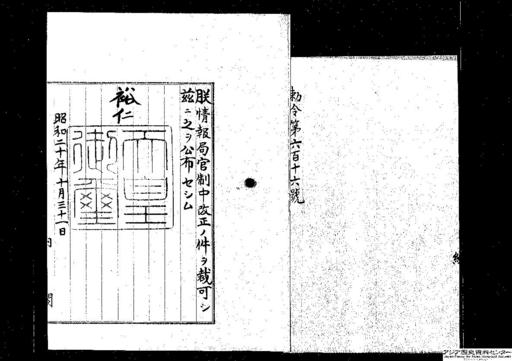 勅令第六百十六號
朕情報局官制中改正ノ件ヲ裁可シ
茲ニ之ヲ公布セシム
裕仁
天皇御璽
昭和二十年十月三十一日
内閣
アジア歴史資料センター